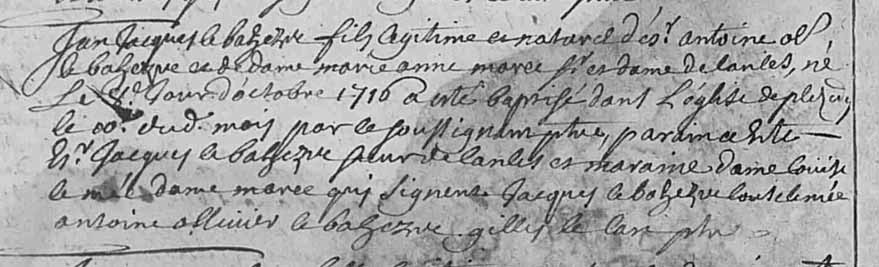 Jan Jacques le balzezre fils legitime et naturel d'es.r antoine oll.
le balzezre et de dame marie anne maree s.r et dame de lanles, né
le 8.e Jour d'octobre 1716 a esté baptisé dans L'église de
le dud. mois par le soussignant ptre, parain a esté
Es.r Jacques le balzezre sieur de lanles et maraine dame louise
le mée dame maree qui signent Jacques le balzezre louise le mée
antoine ollivier le balzezre. gilles le lan ptre